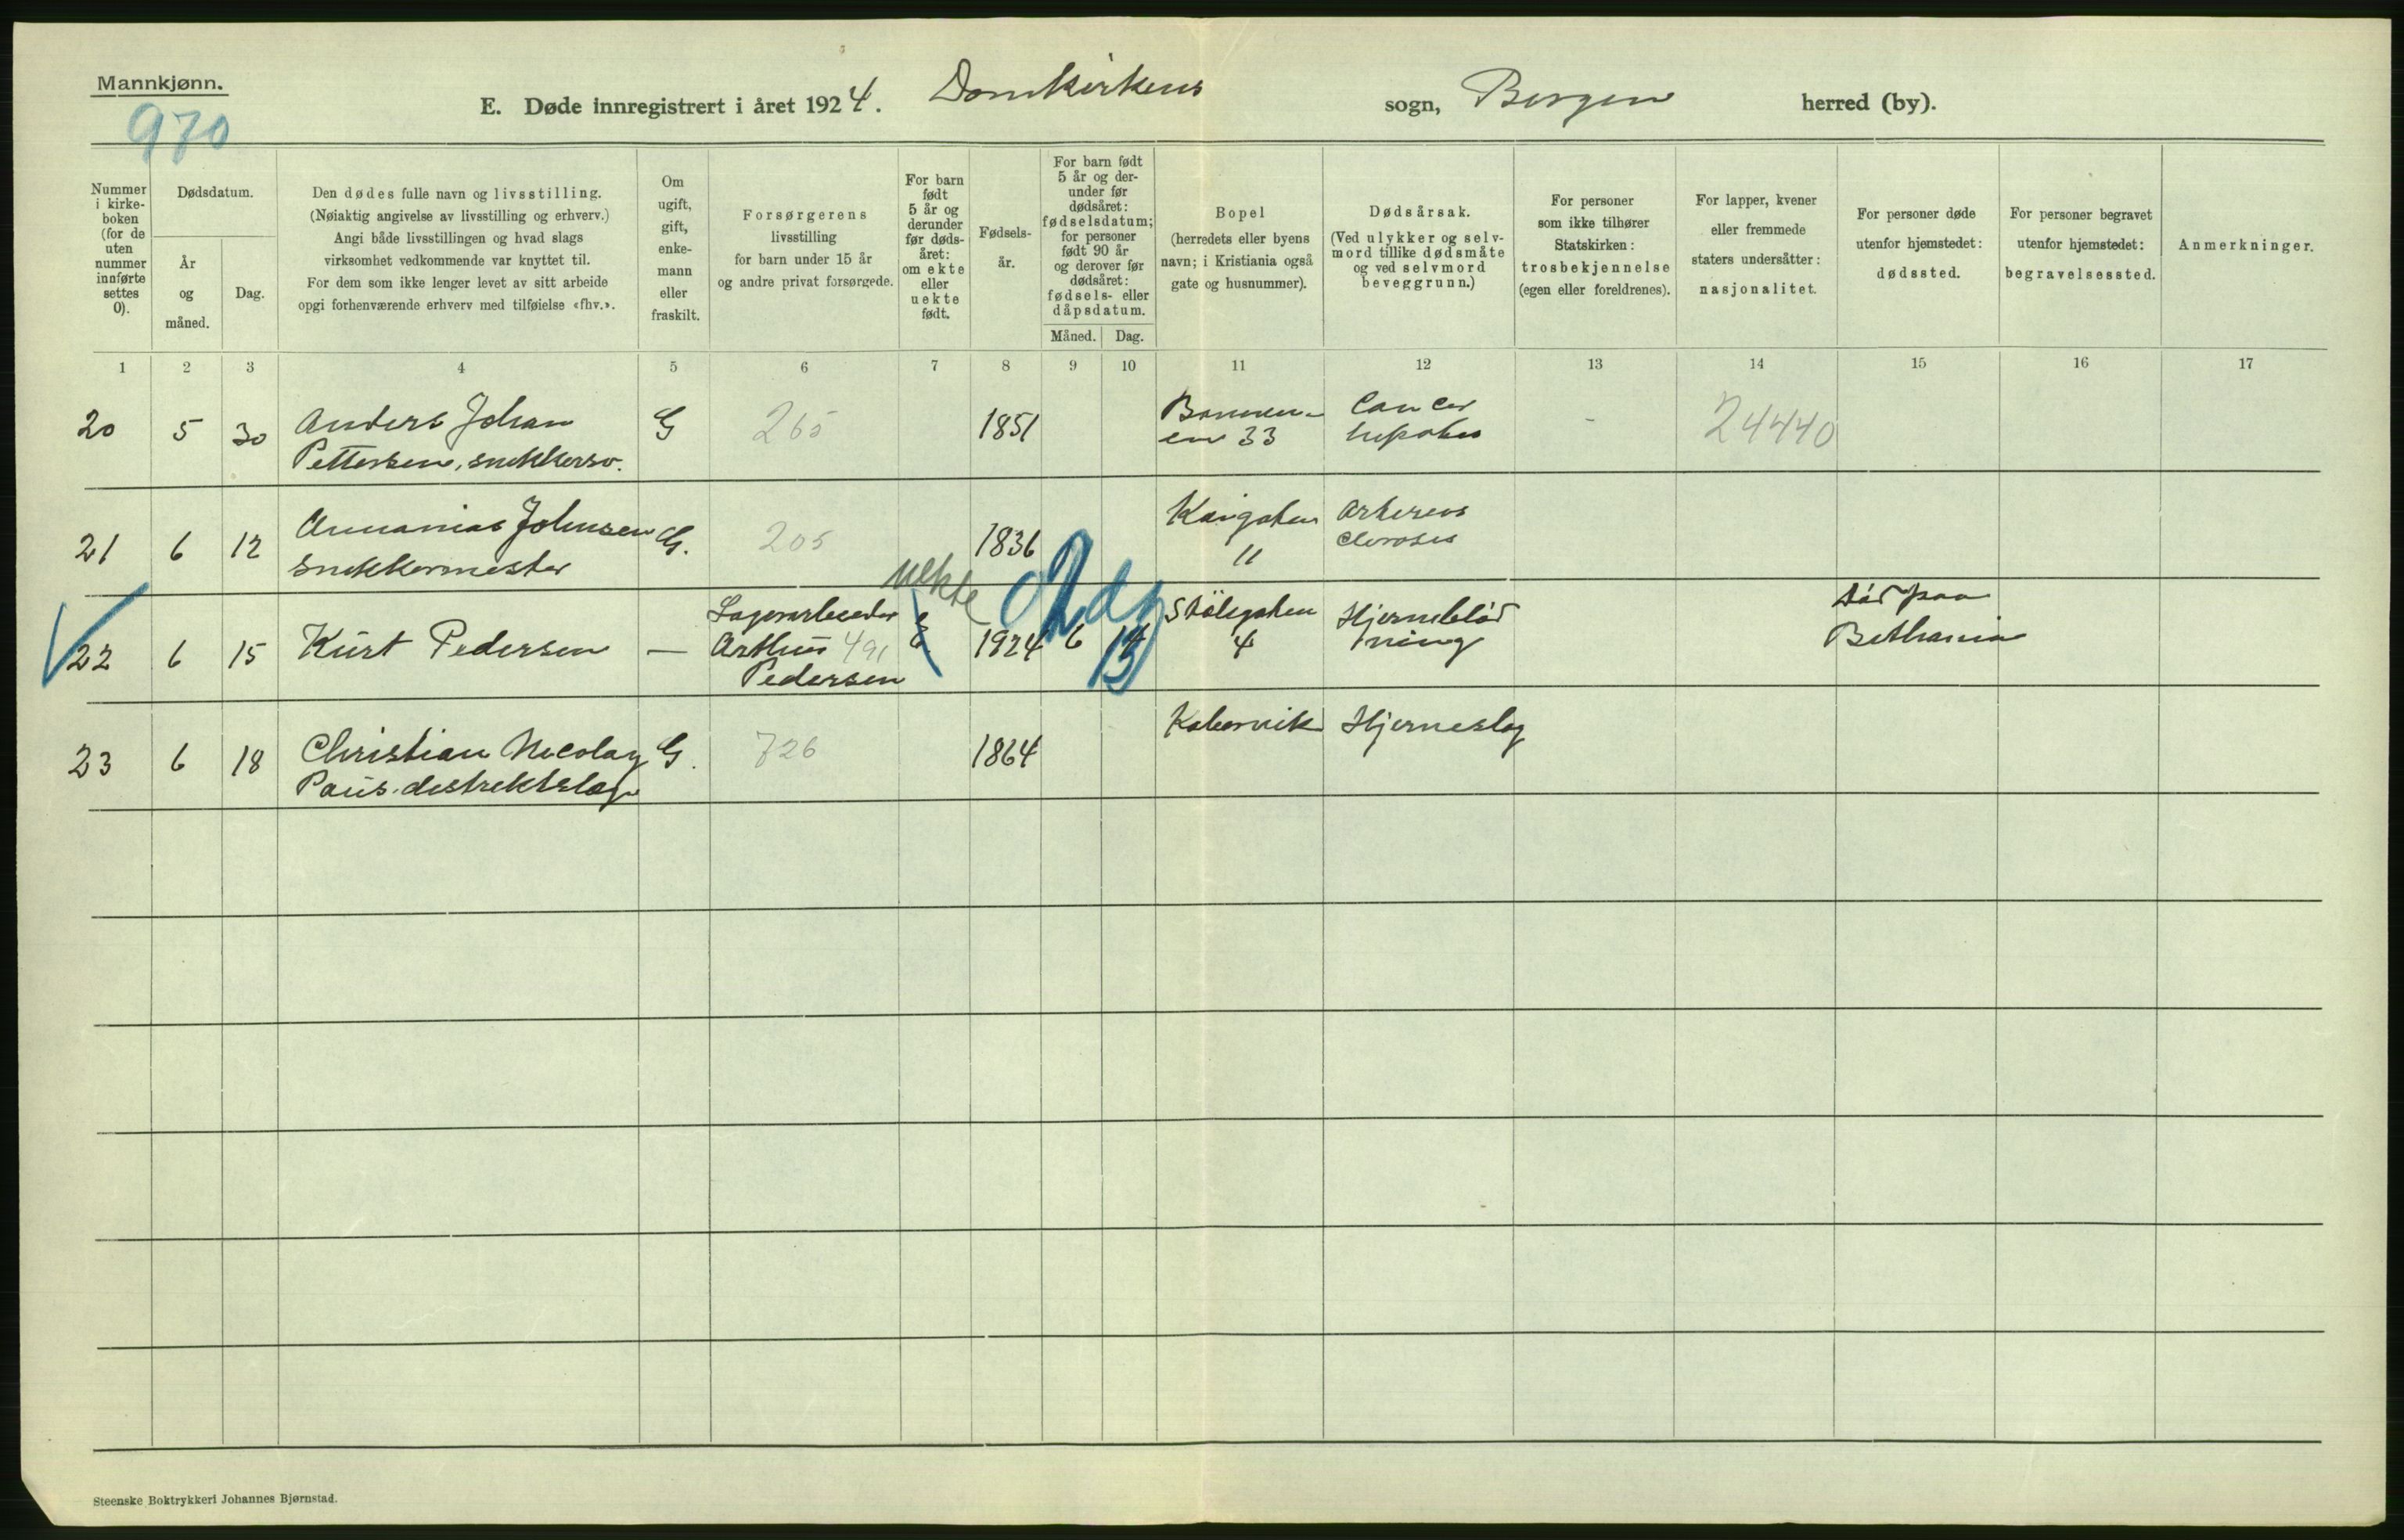 Mannkjønn.
970
E. Døde innregistrert i året 1924. Domkirkens sogn, Bergen herred (by).
Nummer i kirke- boken (for de uten nummer innførte settes 0).
Dødsdatum.
År og måned.
Dag.
Den dødes fulle navn og livsstilling.
(Nøiaktig angivelse av livsstilling og erhverv.)
Angi både livsstillingen og hvad slags
virksomhet vedkommende var knyttet til.
For dem som ikke lenger levet av sitt arbeide
opgi forhenværende erhverv med tilføielse «fhv.».
Om ugift, gift, enke- mann eller fraskilt.
Forsørgerens
livsstilling
for barn under 15 år
og andre privat forsørgede.
For barn født 5 år og derunder før døds- året: om ekte eller uekte født.
Fødsels- år.
For barn født 5 år og der- under før dødsåret: fødselsdatum; for personer født 90 år og derover før dødsåret: fødsels- eller dåpsdatum.
Måned.
Dag.
Bopel
(herredets eller byens
navn; i Kristiania også
gate og husnummer).
Dødsårsak.
(Ved ulykker og selv-
mord tillike dødsmåte
og ved selvmord
beveggrunn.)
For personer
som ikke tilhører
Statskirken:
trosbekjennelse
(egen eller foreldrenes).
For lapper, kvener
eller fremmede
staters undersåtter:
nasjonalitet.
For personer døde
utenfor hjemstedet:
dødssted.
For personer begravet
utenfor hjemstedet:
begravelsessted.
Anmerkninger.
1 2 3 4 5 6 7 8 9 10 11 12 13 14 15 16 17
20 5 30 Anders Johan G 265 1851 Cancer - 24440
Pettersen, snekkersv. en 33 hepatis
21 6 12 Annanias Johnsen G. 205 1836 Kongohen
snekkermester 11
uekte
22 6 15 Kurt Pedersen — Lagerarbeider E 1924 6 14 Stölegaten Hjerneblød død paa
Arthur 491 15 4 ning Bethania
Pedersen
2 dg
23 6 18 Christian Nicolay G. 726 1864 Kobervik Hjerneslag
Paus. distriktslæge
Steenske Boktrykkeri Johannes Bjørnstad.